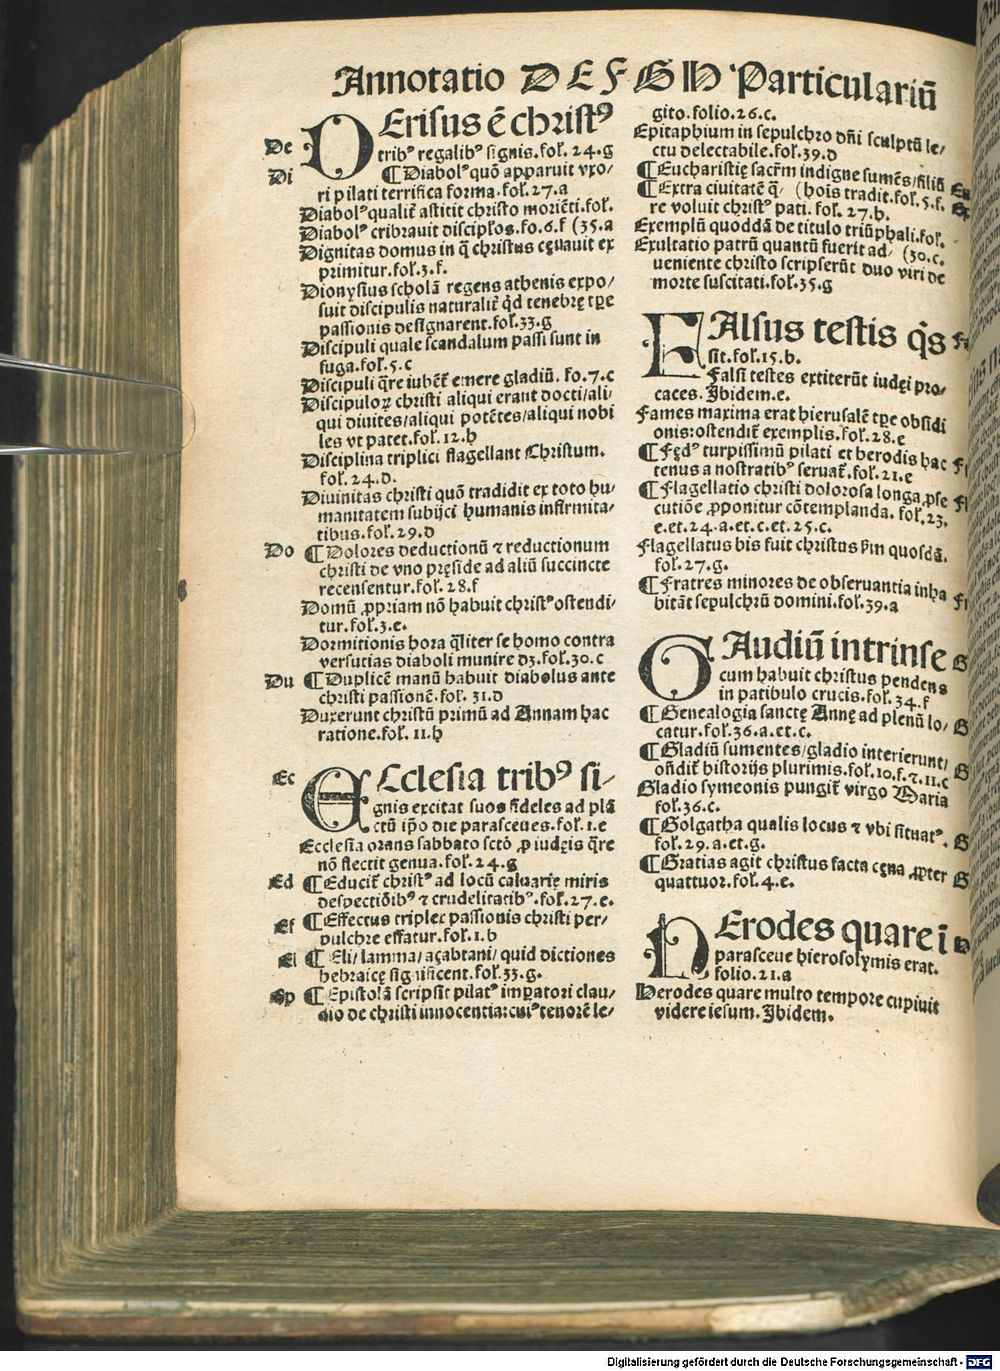 Annotatio D E F G H Particulariū
De
DErisus ē christꝰ
tribꝰ regalibꝰ signis.fol. 24.g
Di
¶Diabolꝰ quō apparuit vxo/
ri pilati terrifica forma.fol.27.a
Diabolꝰ qualiť astitit christo moriēti.fol.
Diabolꝰ cribrauit discipłos.fo.6.f (35.a
Dignitas domus in q̄ christus cęnauit ex
primitur.fol.3.f.
Dionysius scholā regens athenis expo/
suit discipulis naturaliť qd tenebrę tpe
passionis designarent.fol.33.g
Discipuli quale scandalum passi sunt in
fuga.fol.5.c
Discipuli q̄re iubēť emere gladiū. fo.7.c
Discipuloꝝ christi aliqui erant docti/ali/
qui diuites/aliqui potētes/aliqui nobi
les vt patet.fol.12.h
Disciplina triplici flagellant Christum.
fol.24.d.
Diuinitas christi quō tradidit ex toto hu/
manitatem subijci humanis infirmita/
tibus.fol.29.d
Do
¶Dolores deductionū ⁊ reductionum
christi de vno pręside ad aliū succincte
recensentur.fol.28.f
Domū ꝓpriam nō habuit christꝰ ostendi/
tur.fol.3.e.
Dormitionis hora q̄liter se homo contra
versutias diaboli munire dꝫ.fol.30.c
Du
¶Duplicē manū habuit diabolus ante
christi passionē.fol. 31.d
Duxerunt christū primū ad Annam hac
ratione.fol. 11.h
Ec
ECclesia tribꝰ si/
gnis excitat suos fideles ad plā
ctū ipo die parasceues.fol.1.e
Ecclesia orans sabbato sctō p iudęis q̄re
nō flectit genua.fol.24.g
Ed
¶Educiť christꝰ ad locū caluarię miris
despectiōibꝰ ⁊ crudelitatibꝰ.fol.27.e.
Ef
¶Effectus triplex passionis christi per/
pulchre effatur.fol.1.b
El
¶Eli/lamma/açabtani/quid dictiones
hebraicę significent.fol.33.g.
Ep
¶Epistolā scripsit pilatꝰ impatori clau/
dio de christi innocentia:cuiꝰ tenorē le/
gito.folio.26.c.
Epitaphium in sepulchro dñi sculptū le/
ctu delectabile.fol.39.d
¶Eucharistię sacrm indigne sumēs/filiū
¶Extra ciuitatē q̄/ (hois tradit.fol.5.f.
re voluit christꝰ pati. fol. 27.h.
Exemplū quoddā de titulo triūphali.fol.
Exultatio patrū quantū fuerit ad/ (30.c.
ueniente christo scripserūt duo viri de
morte suscitati.fol.35.g
FAlsus testis q̄s
sit.fol.15.b.
Falsi testes extiterūt iudęi pro/
caces. Ibidem.e.
Fames maxima erat hierusalē tpe obsidi
onis:ostendiť exemplis.fol.28.e
¶Fędꝰ turpissimū pilati et herodis hac
tenus a nostratibꝰ seruať.fol.21.e
¶Flagellatio christi dolorosa longa ꝓse
cutiōe ꝓponitur cōtemplanda. fol.23.
e.et.24.a.et.c.et.25.c.
Flagellatus bis fuit christus ẜm quosdā.
fol.27.g.
¶Fratres minores de obseruantia inha
bitāt sepulchrū domini.fol.39.a
GAudiū intrinse
cum habuit christus pendens
in patibulo crucis.fol.34.f
¶Genealogia sanctę Annę ad plenū lo/
catur.fol.36.a.et.c.
¶Gladiū sumentes/gladio interierunt/
oñdiť historijs plurimis.fol.10.f.⁊.11.c
Gladio symeonis pungiť virgo Maria
fol.36.c.
¶Golgatha qualis locus ⁊ vbi situatꝰ.
fol.29.a.et.g.
¶Gratias agit christus facta cęna ꝓpter
quattuor.fol.4.e.
HErodes quare ī
parasceue hierosolymis erat.
folio.21.a
Herodes quare multo tempore cupiuit
videre iesum. Ibidem.
Digitalisierung gefördert durch die Deutsche Forschungsgemeinschaft - DFG